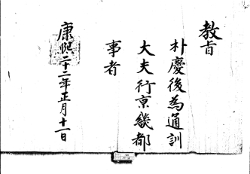 教旨
朴慶後為通訓
大夫行京畿都
事者
康熙二十二年正月十一日